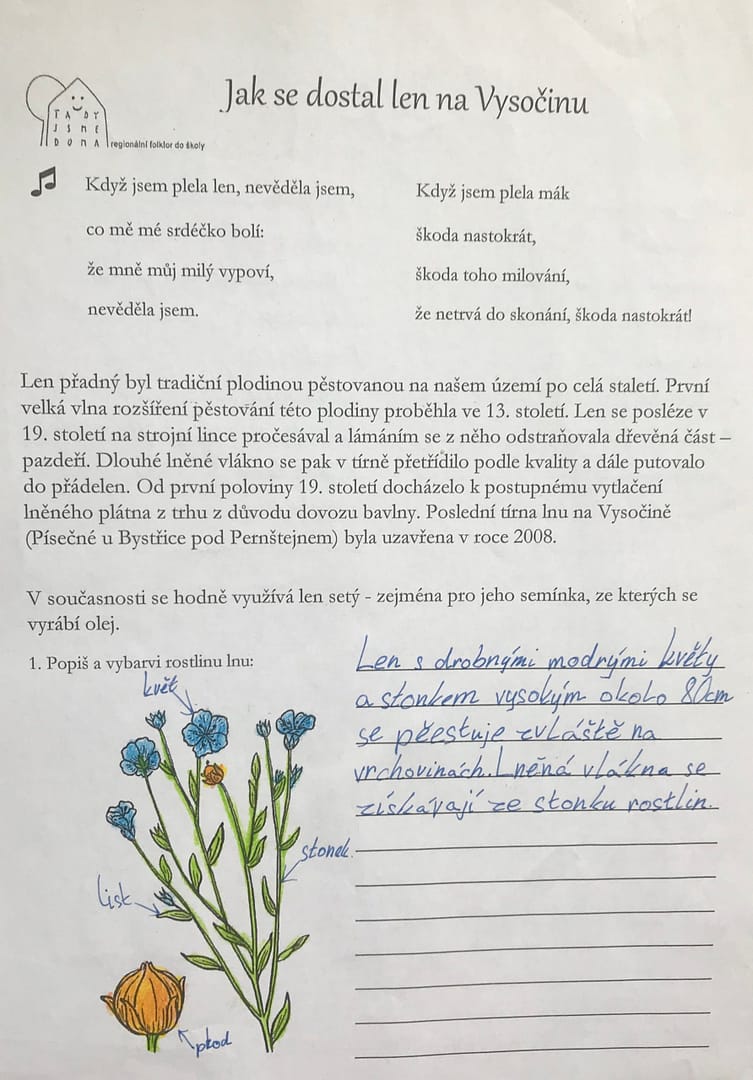 Jak se dostal len na Vysočinu
TADY
JSME
DOMA
regionální folklor do školy
Když jsem plela len, nevěděla jsem,
co mě mé srdéčko bolí:
že mně můj milý vypoví,
nevěděla jsem.
Když jsem plela mák
škoda nastokrát,
škoda toho milování,
že netrvá do skonání, škoda nastokrát!
Len přadný byl tradiční plodinou pěstovanou na našem území po celá staletí. První
velká vlna rozšíření pěstování této plodiny proběhla ve 13. století. Len se posléze v
19. století na strojní lince pročesával a lámáním se z něho odstraňovala dřevěná část –
pazdeří. Dlouhé lněné vlákno se pak v tírně přetřídilo podle kvality a dále putovalo
do přádelen. Od první poloviny 19. století docházelo k postupnému vytlačení
lněného plátna z trhu z důvodu dovozu bavlny. Poslední tírna lnu na Vysočině
(Písečné u Bystřice pod Pernštejnem) byla uzavřena v roce 2008.
V současnosti se hodně využívá len setý - zejména pro jeho semínka, ze kterých se
vyrábí olej.
1. Popiš a vybarvi rostlinu lnu:
květ
stonek
lisk
plod
Len s drobnými modrými květy
a stonkem vysokým okolo 80cm
se pěestuje zvláště na
vrchovinách. Lněná vlákna se
získávají ze stonku rostlin.